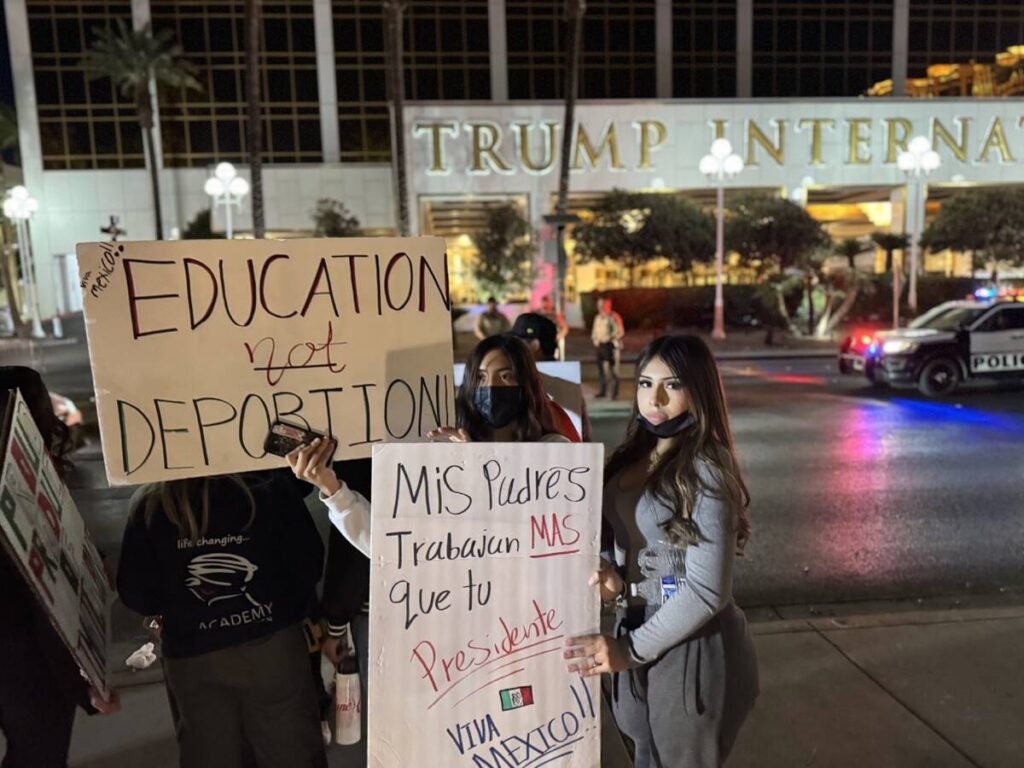 TRUMP INTERNAT
Viva
Mexico!!
EDUCATION
not
DEPORTION!
life changing...
ACADEMY
POLIC
Mis Padres
Trabajan MAS
que tu
Presidente
VIVA
MEXICO!!